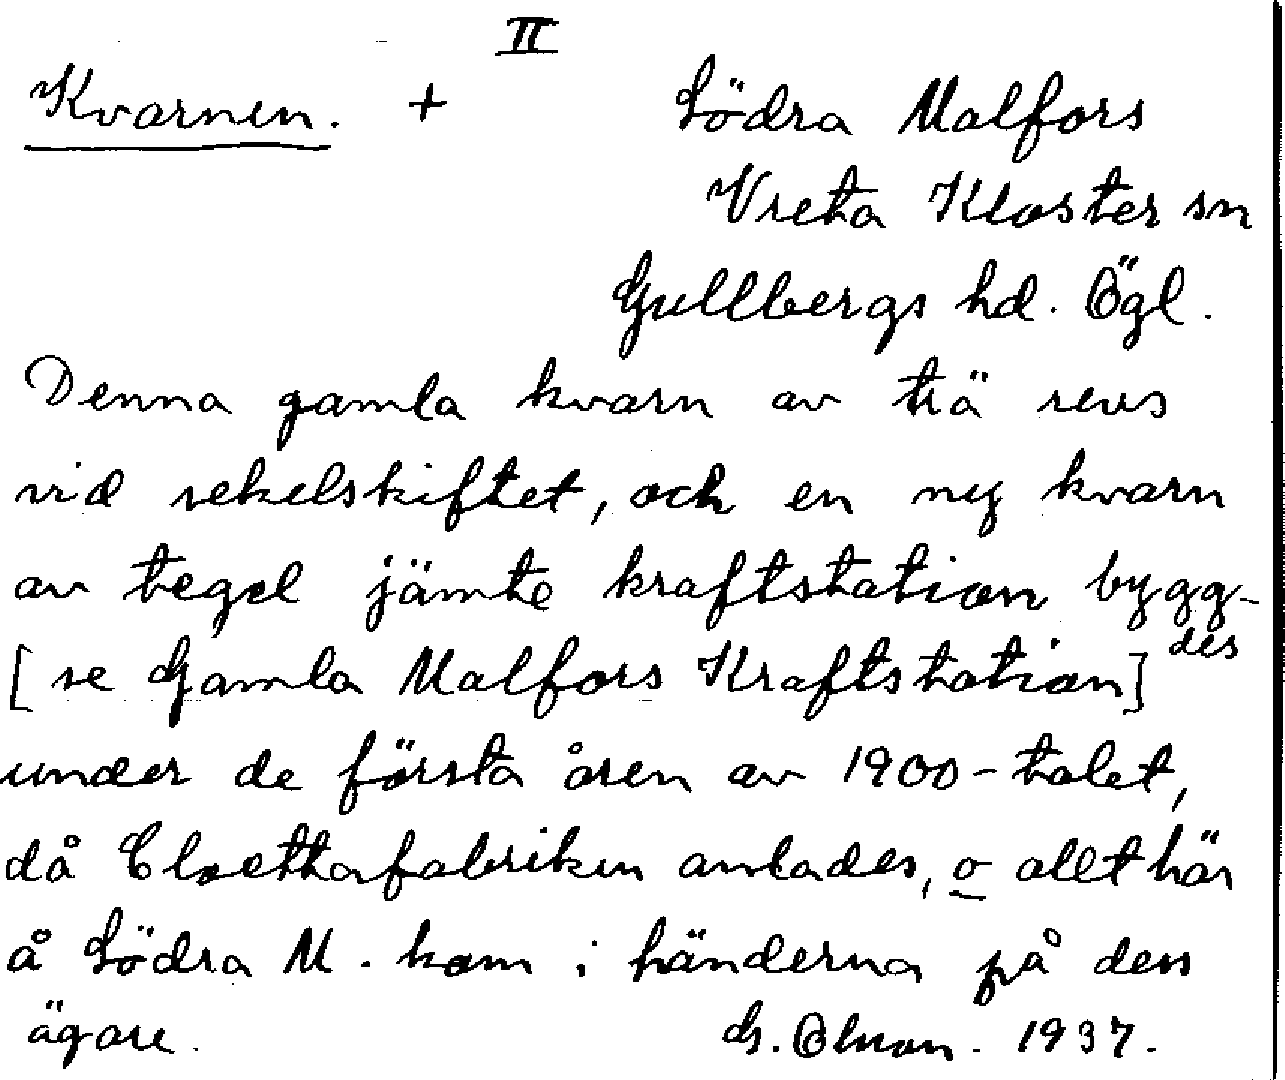 II
Kvarnen. + Södra Malfors
Vreta Kloster sn
Gullbergs hd. Ögl.
Denna gamla kvarn av trä revs
vid sekelskiftet, och en ny kvarn
av tegel jämte kraftstation bygg-
des
[se Gamla Malfors Kraftstation]
under de första åren av 1900-talet,
då Cloettafabriken anlades, o allt här
å Södra M. kom i händerna på den
ägare. G. Olsson. 1937.